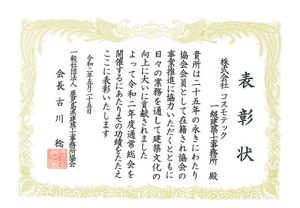 表彰状
株式会社 コスモテック
一級建築士事務所 殿
貴所は二十五年の永きにわたり
協会会員として在籍され協会の
事業推進に協力いただくとともに
日々の業務を通して建築文化の
向上に大いに貢献されました
よって令和二年度通常総会を
開催するにあたりその功績をたたえ
ここに表彰いたします
令和二年五月二十五日
一般社団法人 鹿児島県建築士事務所協会
会長 古川 稔